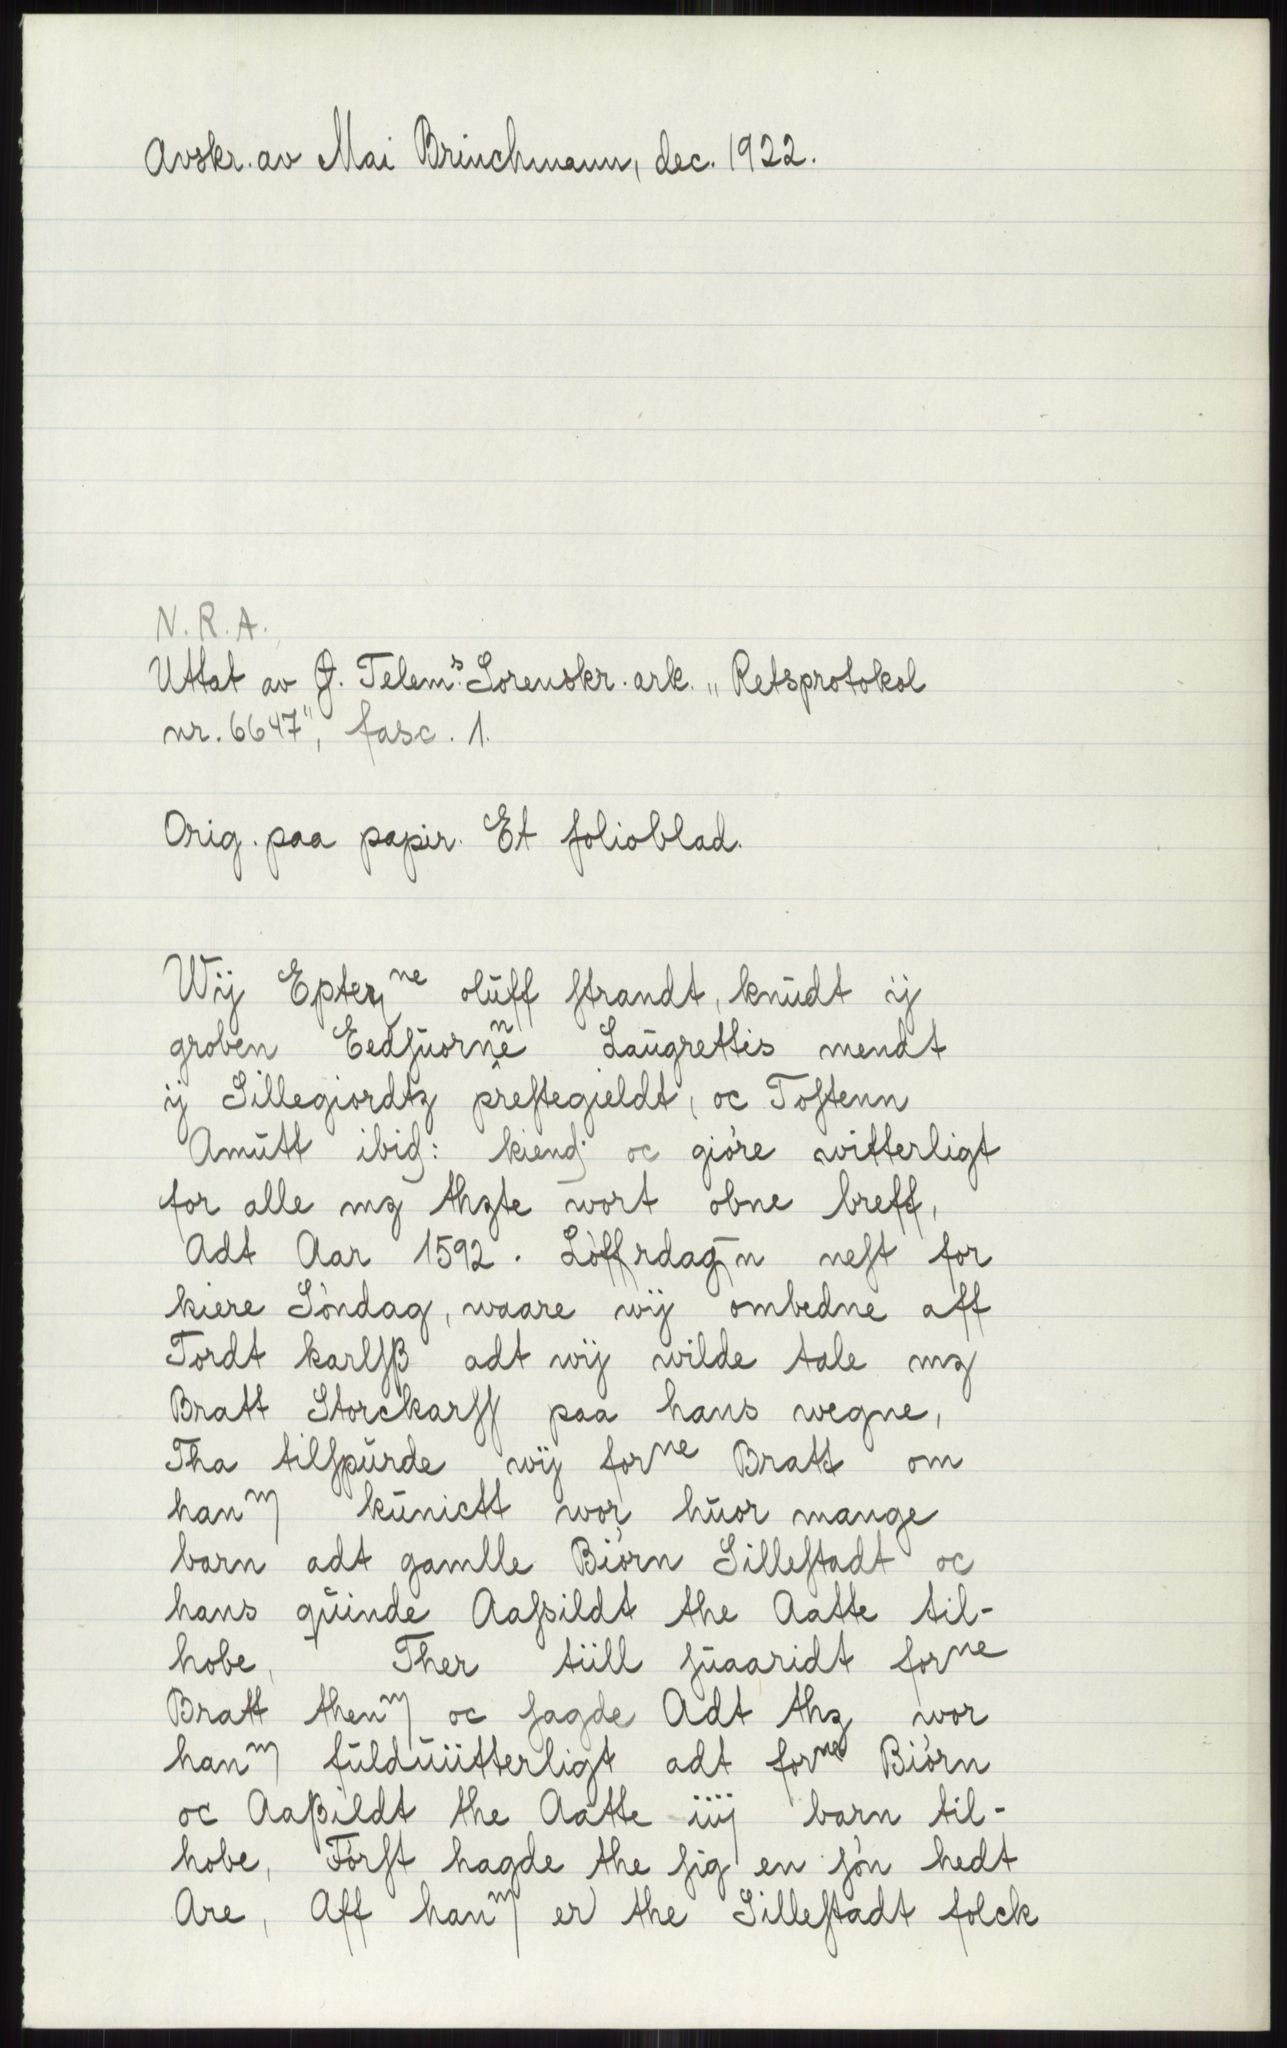 Avskr. av Mai Brinchmann, dec. 1922.
N. R. A.
Uttat av Ø. Telem.s Sorenskr. ark. „Retsprotokol
nr. 6647”, fasc. 1.
Orig. paa papir. Et folioblad.
Wij Epterne oluff strandt, knudt ij
groben Eedsuornne Laugrettis mendt
ij Sillegiordtz prestegieldt, oc Tostenn
Amutt ibid: kiend oc giöre witterligt
for alle mz thzte wort obne breff,
Adt Aar 1592. Löffrdagen nest for
kiere Söndag, waare wij ombedne aff
Tordt karlsß adt wij wilde tale mz
Bratt Storckarss paa hans wegne,
Tha tilspurde wij forne Bratt om
hanm kunictt wor huor mange
barn adt gamlle Biörn Sillestadt oc
hans quinde Aassildt the Aatte til-
hobe, Ther tiill suaaridt forne
Bratt thenm oc sagde Adt thz wor
hanm fulduiitterligt adt forne Biörn
oc Aaßildt the Aatte iiij barn til-
hobe, Först hagde the sig en sön hedt
Are, Aff hanm er the Sillestadt folck